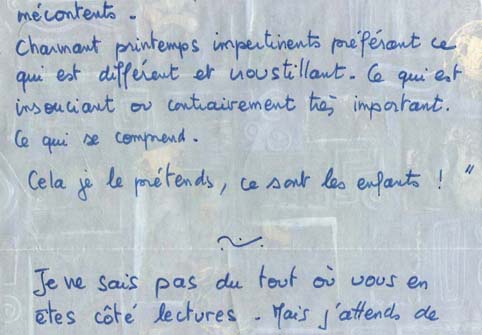 mécontents.
Charmant printemps impertinents préférant ce
qui est différent et croustillant. Ce qui est
insouciant ou contrairement très important.
Ce qui se comprend.
Cela je le prétends, ce sont les enfants ! "
Je ne sais pas du tout où vous en
êtes côté lectures. Mais j'attends de